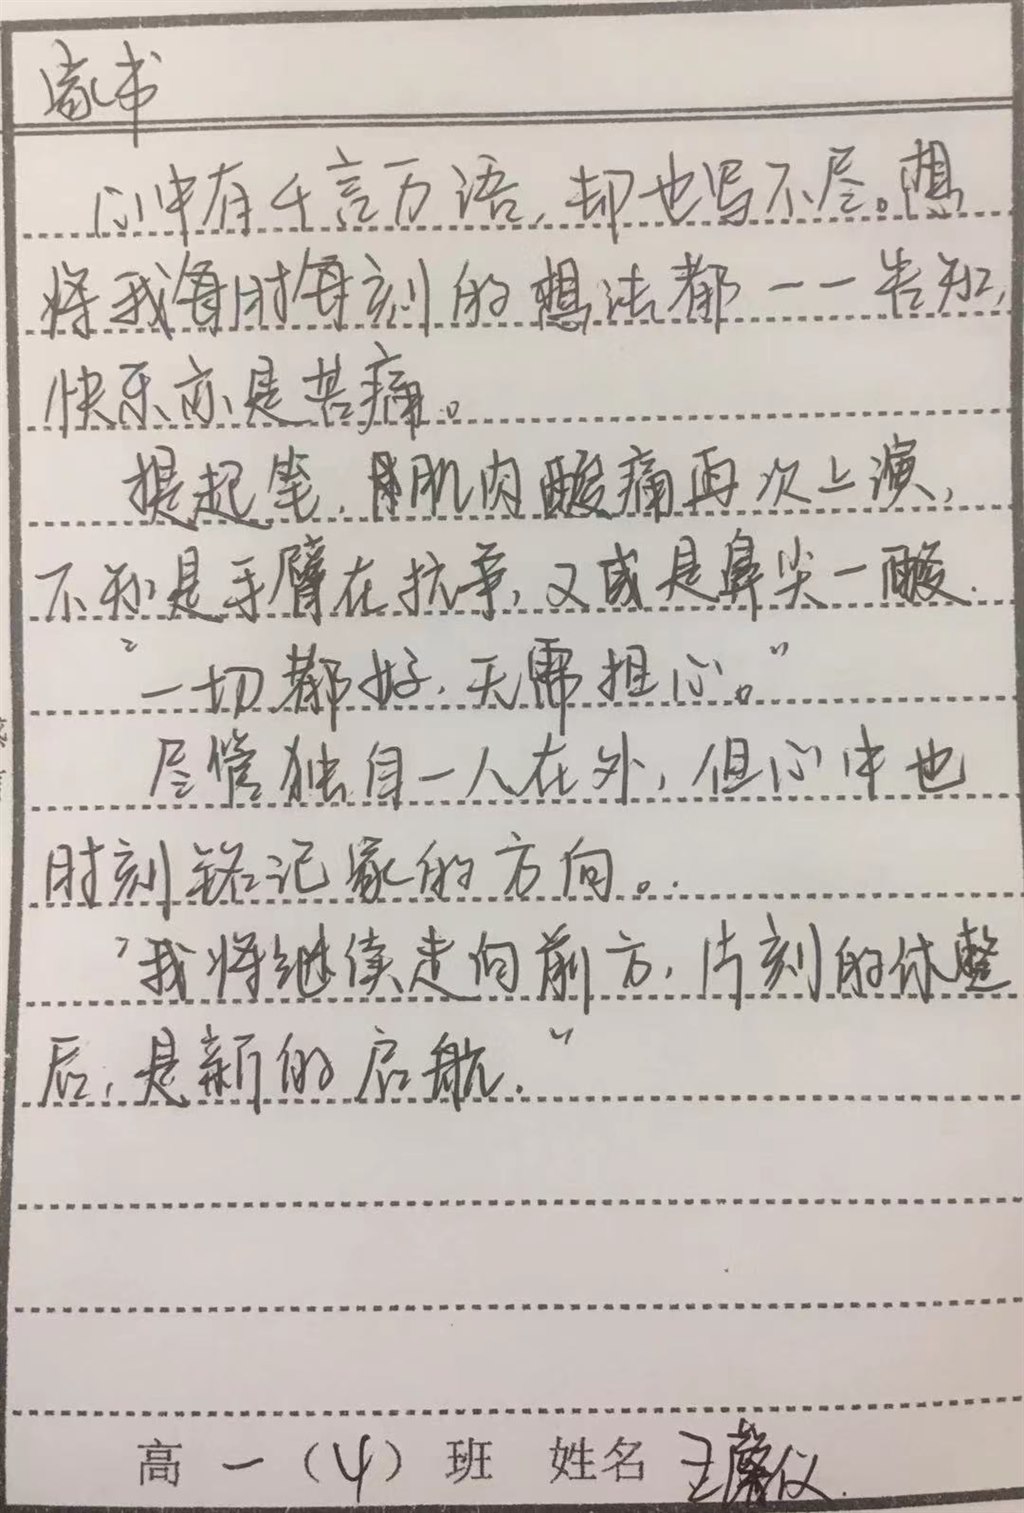 家书
心中有千言万语,却也写不尽。想
将我每时每刻的想法都一一告知,
快乐亦是苦痛。
提起笔,肌肉酸痛再次上演,
不知是手臂在抗争,又或是鼻尖一酸.
“一切都好,无需担心。”
尽管独自一人在外,但心中也
时刻铭记家的方向。
“我将继续走向前方,片刻的休整
后,是新的启航.”
高一(4)班 姓名 王馨仪.